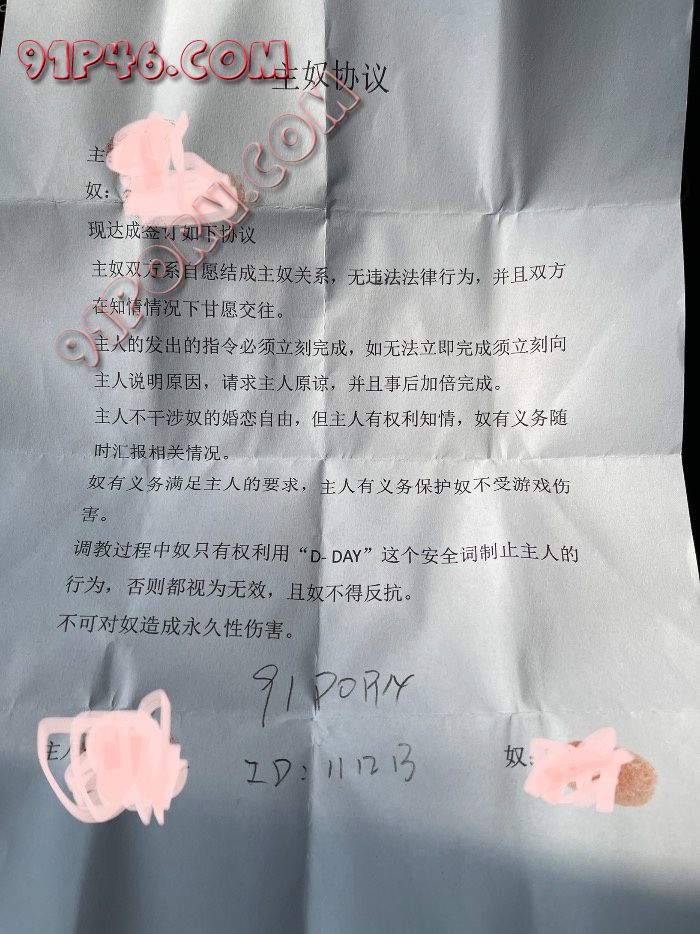 91P46.COM
主奴协议
91PORN.COM
主
奴：
现达成签订如下协议
主奴双方系自愿结成主奴关系，无违法法律行为，并且双方
在知情情况下甘愿交往。
主人的发出的指令必须立刻完成，如无法立即完成须立刻向
主人说明原因，请求主人原谅，并且事后加倍完成。
主人不干涉奴的婚恋自由，但主人有权利知情，奴有义务随
时汇报相关情况。
奴有义务满足主人的要求，主人有义务保护奴不受游戏伤
害。
调教过程中奴只有权利用“D-DAY”这个安全词制止主人的
行为，否则都视为无效，且奴不得反抗。
不可对奴造成永久性伤害。
91PORN
主人
ID：111213
奴：